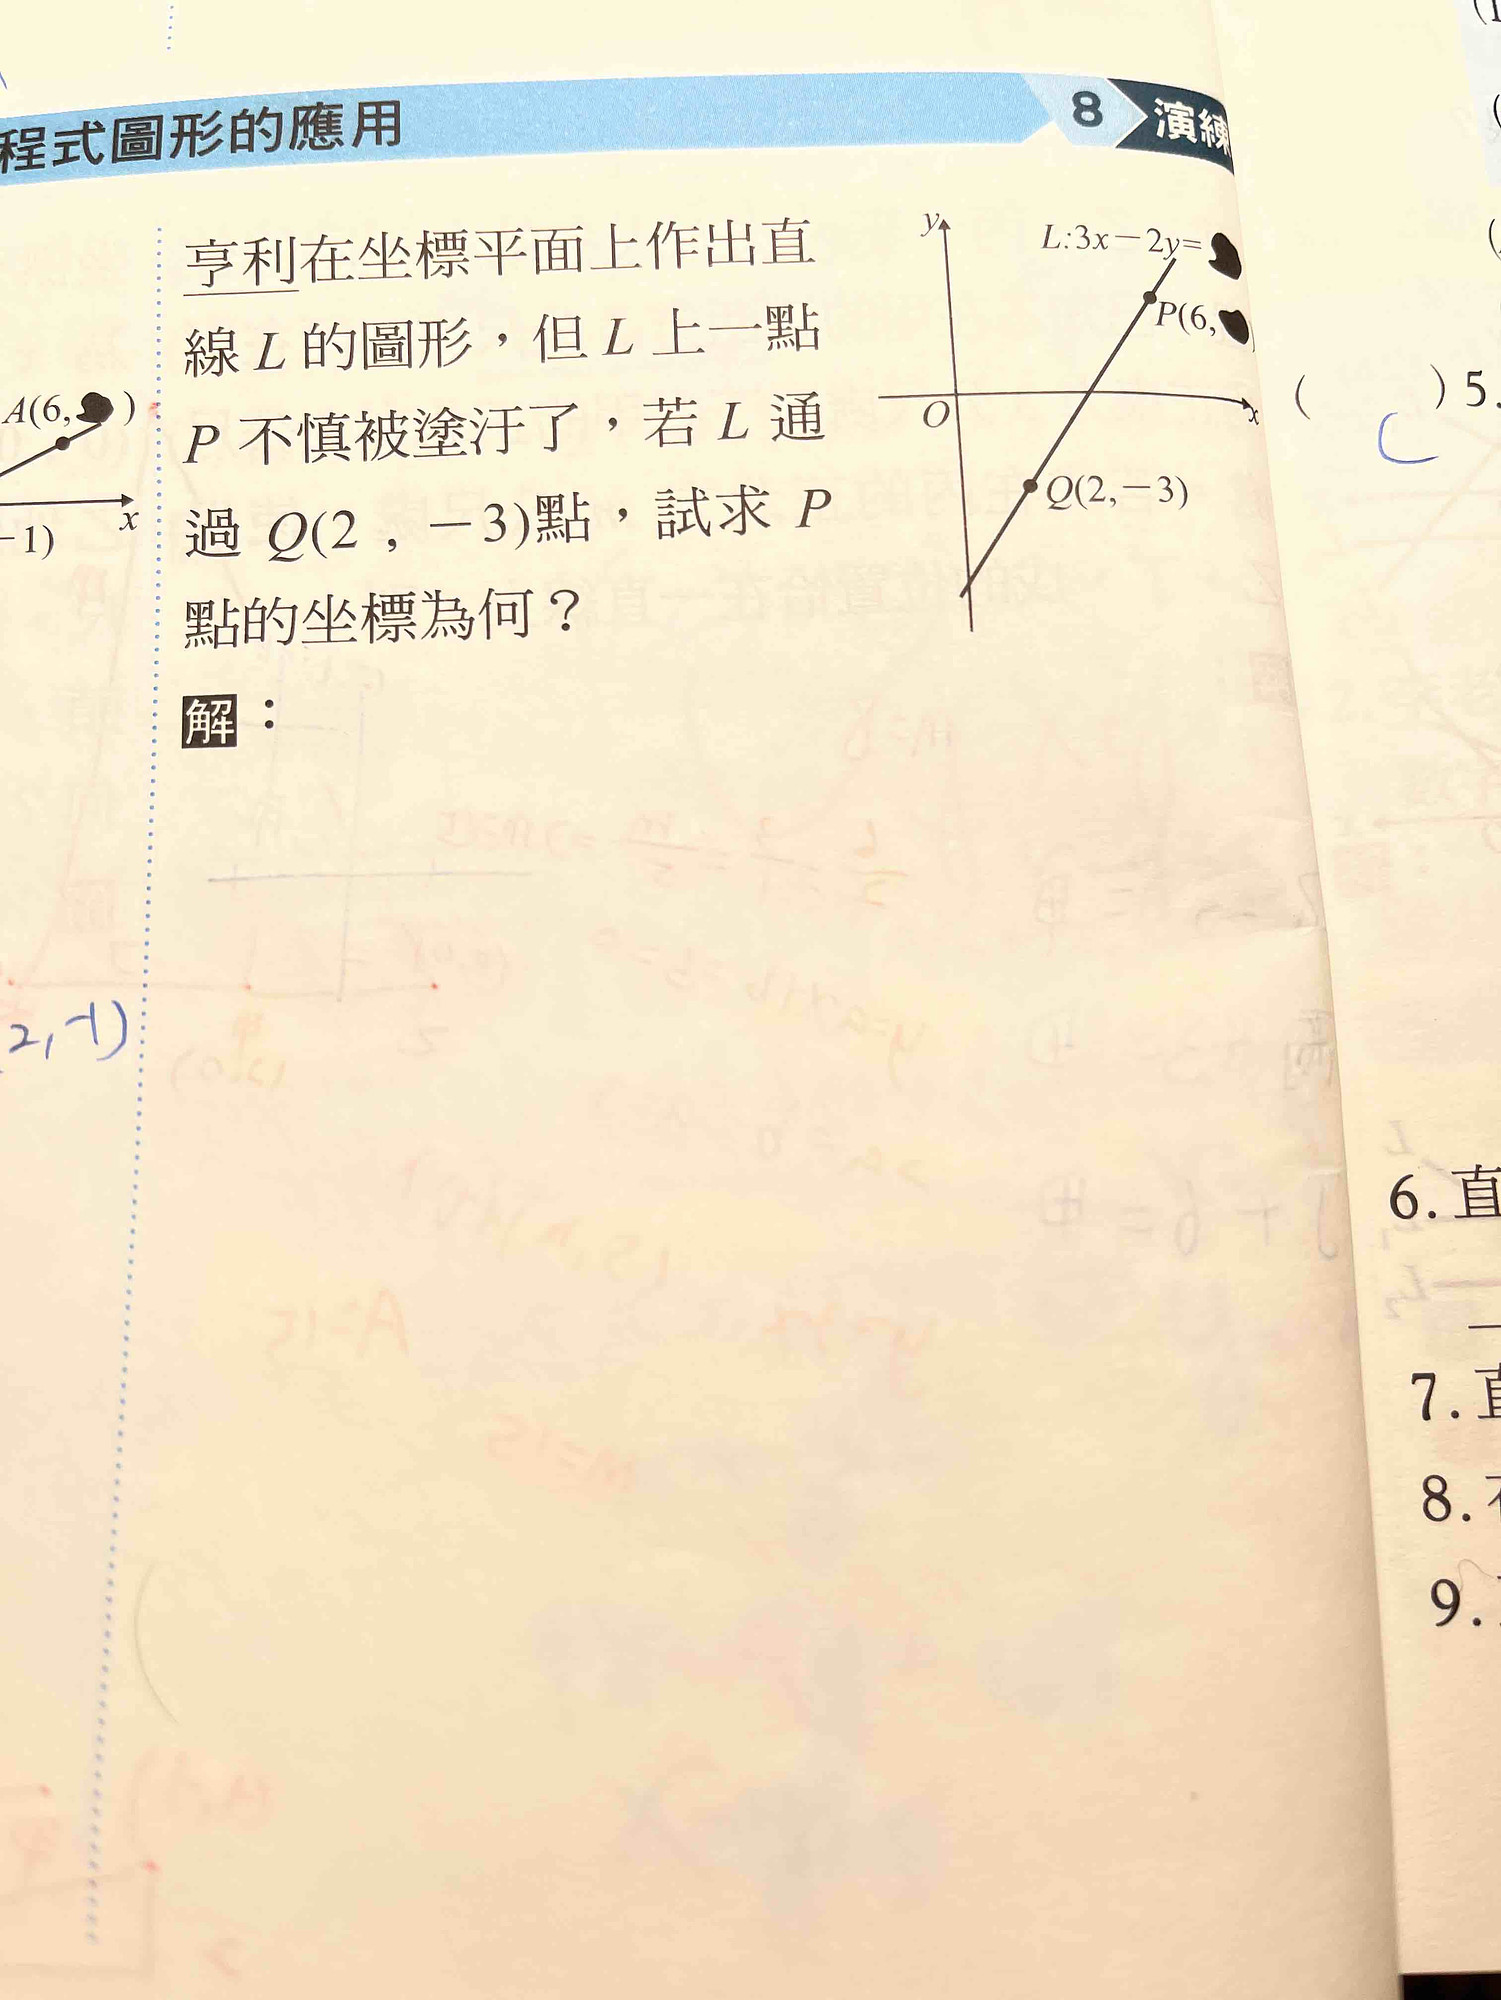 程式圖形的應用
8 演練
亨利在坐標平面上作出直
線 L 的圖形，但 L 上一點
P 不慎被塗汙了，若 L 通
過 Q(2 , －3)點，試求 P
點的坐標為何？
解：
y
L:3x－2y=
P(6,
O
x
Q(2,－3)
A(6, )
x
－1)
2,-1)
( ) 5.
C
6. 直
7. 直
8.
9.